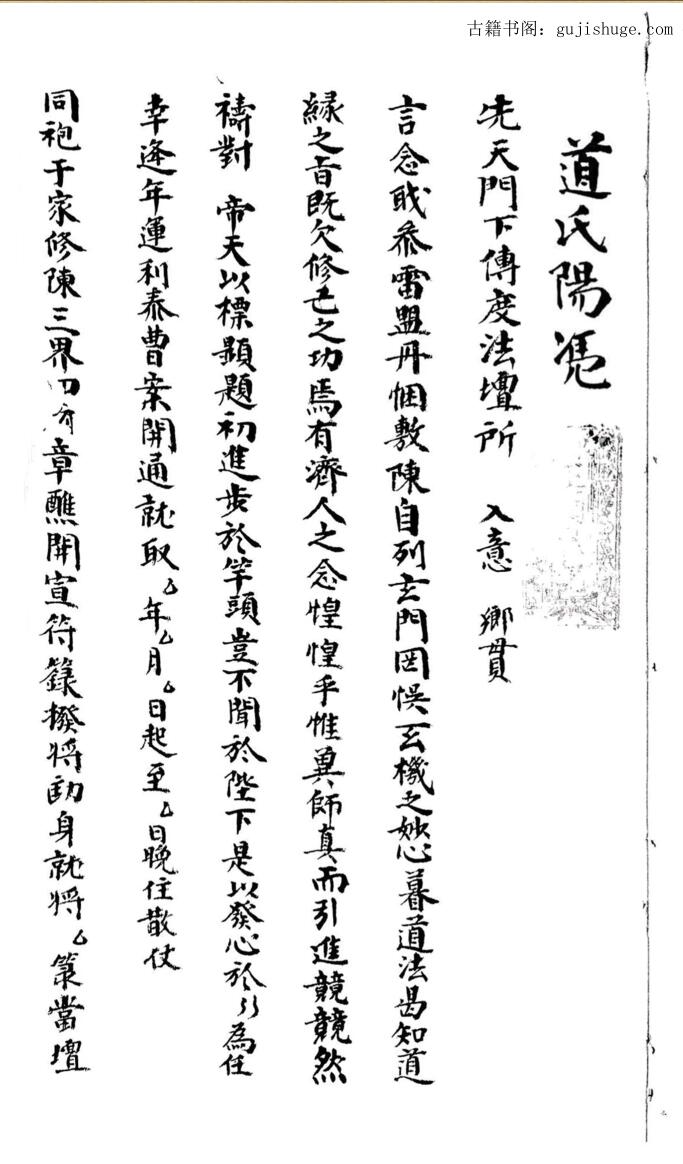 古籍书阁：gujishuge.com
道氏陽凴
先天門下傳度法壇所　入意　鄉貫
言念戝叅雷盟丹悃敷陳自列玄門罔悞玄機之妙心暮道法曷知道
緣之旨既欠修己之功焉有濟人之念惶惶乎惟兾師真而引進兢兢然
禱對　帝天以標顯題初進步於竿頭豈不聞於陛下是以發心於　為任
幸逄年運利泰曹案開通就取厶年厶月厶日起至厶日晚住散仗
同袍于家修陳三界四府章醮開宣符籙撥將　身就將厶籙當壇